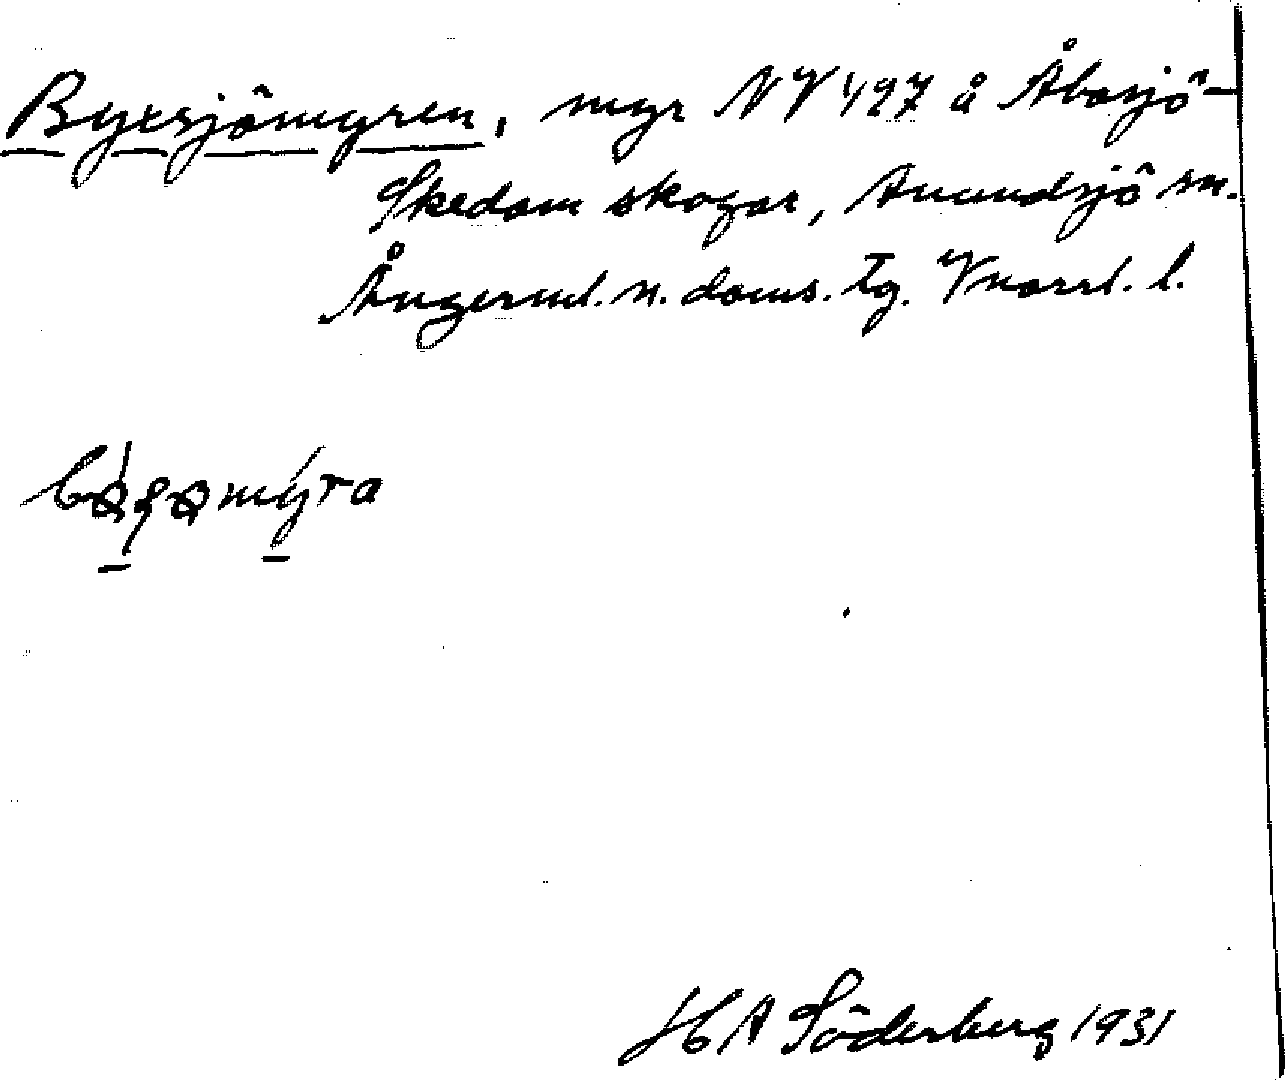 Byxsjömyren, myr NV 497 å Åbosjö-
Skedom skogar, Anundsjö sn.
Ångerml. n. doms. tg. Vnorrl. l.
H A Söderberg 1931